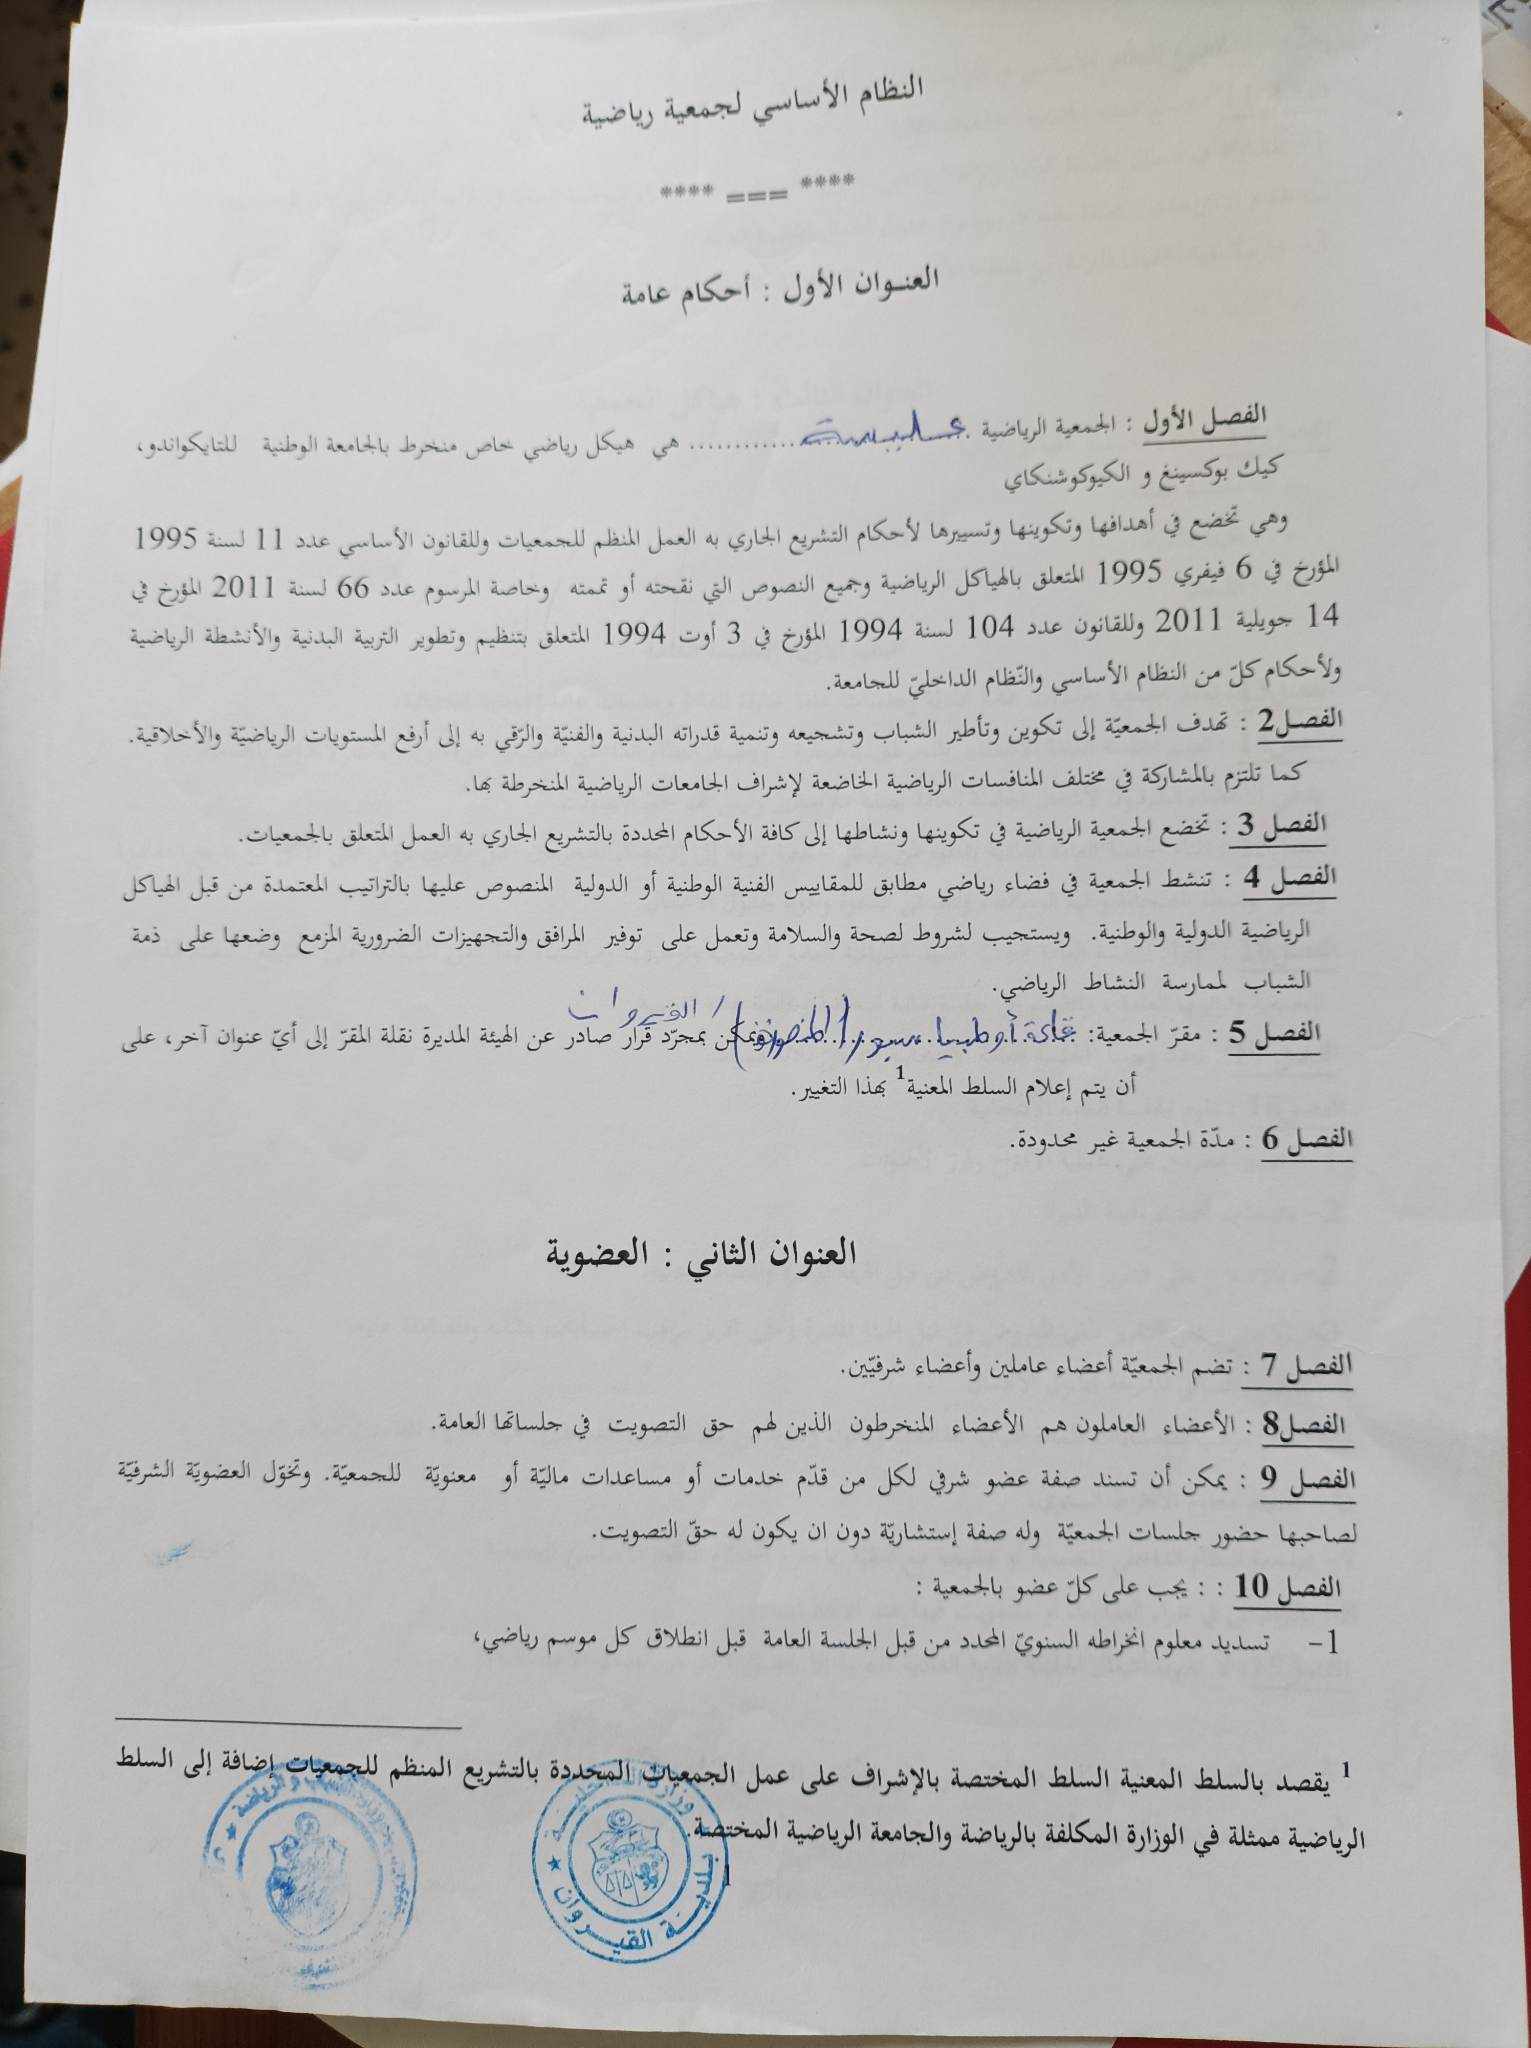 النظام الأساسي لجمعية رياضية
**** === ****
العنوان الأول : أحكام عامة
الفصل الأول : الجمعية الرياضية عليسة ............ هي هيكل رياضي خاص منخرط بالجامعة الوطنية للتايكواندو،
كيك بوكسينغ و الكيوكوشنكاي
وهي تخضع في أهدافها وتكوينها وتسييرها لأحكام التشريع الجاري به العمل المنظم للجمعيات وللقانون الأساسي عدد 11 لسنة 1995
المؤرخ في 6 فيفري 1995 المتعلق بالهياكل الرياضية وجميع النصوص التي نقحته أو تممته وخاصة المرسوم عدد 66 لسنة 2011 المؤرخ في
14 جويلية 2011 وللقانون عدد 104 لسنة 1994 المؤرخ في 3 أوت 1994 المتعلق بتنظيم وتطوير التربية البدنية والأنشطة الرياضية
ولأحكام كلّ من النظام الأساسي والنّظام الداخليّ للجامعة.
الفصل2 : تهدف الجمعيّة إلى تكوين وتأطير الشباب وتشجيعه وتنمية قدراته البدنية والفنيّة والرّقي به إلى أرفع المستويات الرياضيّة والأخلاقية.
كما تلتزم بالمشاركة في مختلف المنافسات الرياضية الخاضعة لإشراف الجامعات الرياضية المنخرطة بها.
الفصل 3 : تخضع الجمعية الرياضية في تكوينها ونشاطها إلى كافة الأحكام المحددة بالتشريع الجاري به العمل المتعلق بالجمعيات.
الفصل 4 : تنشط الجمعية في فضاء رياضي مطابق للمقاييس الفنية الوطنية أو الدولية المنصوص عليها بالتراتيب المعتمدة من قبل الهياكل
الرياضية الدولية والوطنية. ويستجيب لشروط لصحة والسلامة وتعمل على توفير المرافق والتجهيزات الضرورية المزمع وضعها على ذمة
الشباب لممارسة النشاط الرياضي.
الفصل 5 : مقرّ الجمعية: قاعة أولمبيا سبور (المنصورة) / القيروان ويمكن بمجرّد قرار صادر عن الهيئة المديرة نقلة المقرّ إلى أيّ عنوان آخر، على
أن يتم إعلام السلط المعنية1 بهذا التغيير.
الفصل 6 : مدّة الجمعية غير محدودة.
العنوان الثاني : العضوية
الفصل 7 : تضم الجمعيّة أعضاء عاملين وأعضاء شرفيّين.
الفصل8 : الأعضاء العاملون هم الأعضاء المنخرطون الذين لهم حق التصويت في جلساتها العامة.
الفصل 9 : يمكن أن تسند صفة عضو شرفي لكل من قدّم خدمات أو مساعدات ماليّة أو معنويّة للجمعيّة. وتخوّل العضويّة الشرفيّة
لصاحبها حضور جلسات الجمعيّة وله صفة إستشاريّة دون ان يكون له حقّ التصويت.
الفصل 10 : : يجب على كلّ عضو بالجمعية :
1- تسديد معلوم انخراطه السنويّ المحدد من قبل الجلسة العامة قبل انطلاق كل موسم رياضي،
1 يقصد بالسلط المعنية السلط المختصة بالإشراف على عمل الجمعيات المحددة بالتشريع المنظم للجمعيات إضافة إلى السلط
الرياضية ممثلة في الوزارة المكلفة بالرياضة والجامعة الرياضية المختصة.
1
وزارة الداخلية
بلدية القيروان